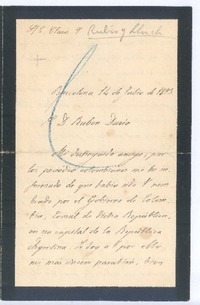 S/C Claris 9 Rubió y Lluch
Barcelona 14 de Julio de 1893
D. Rubén Darío
Mi distinguido amigo: por
los periódicos colombianos me he in-
formado de que había sido V. nom-
brado, por el Gobierno de Colom-
bia, Consul de dicha República,
en la capital de la República
Argentina. Le doy a V. por ello,
mi más sincero parabién,